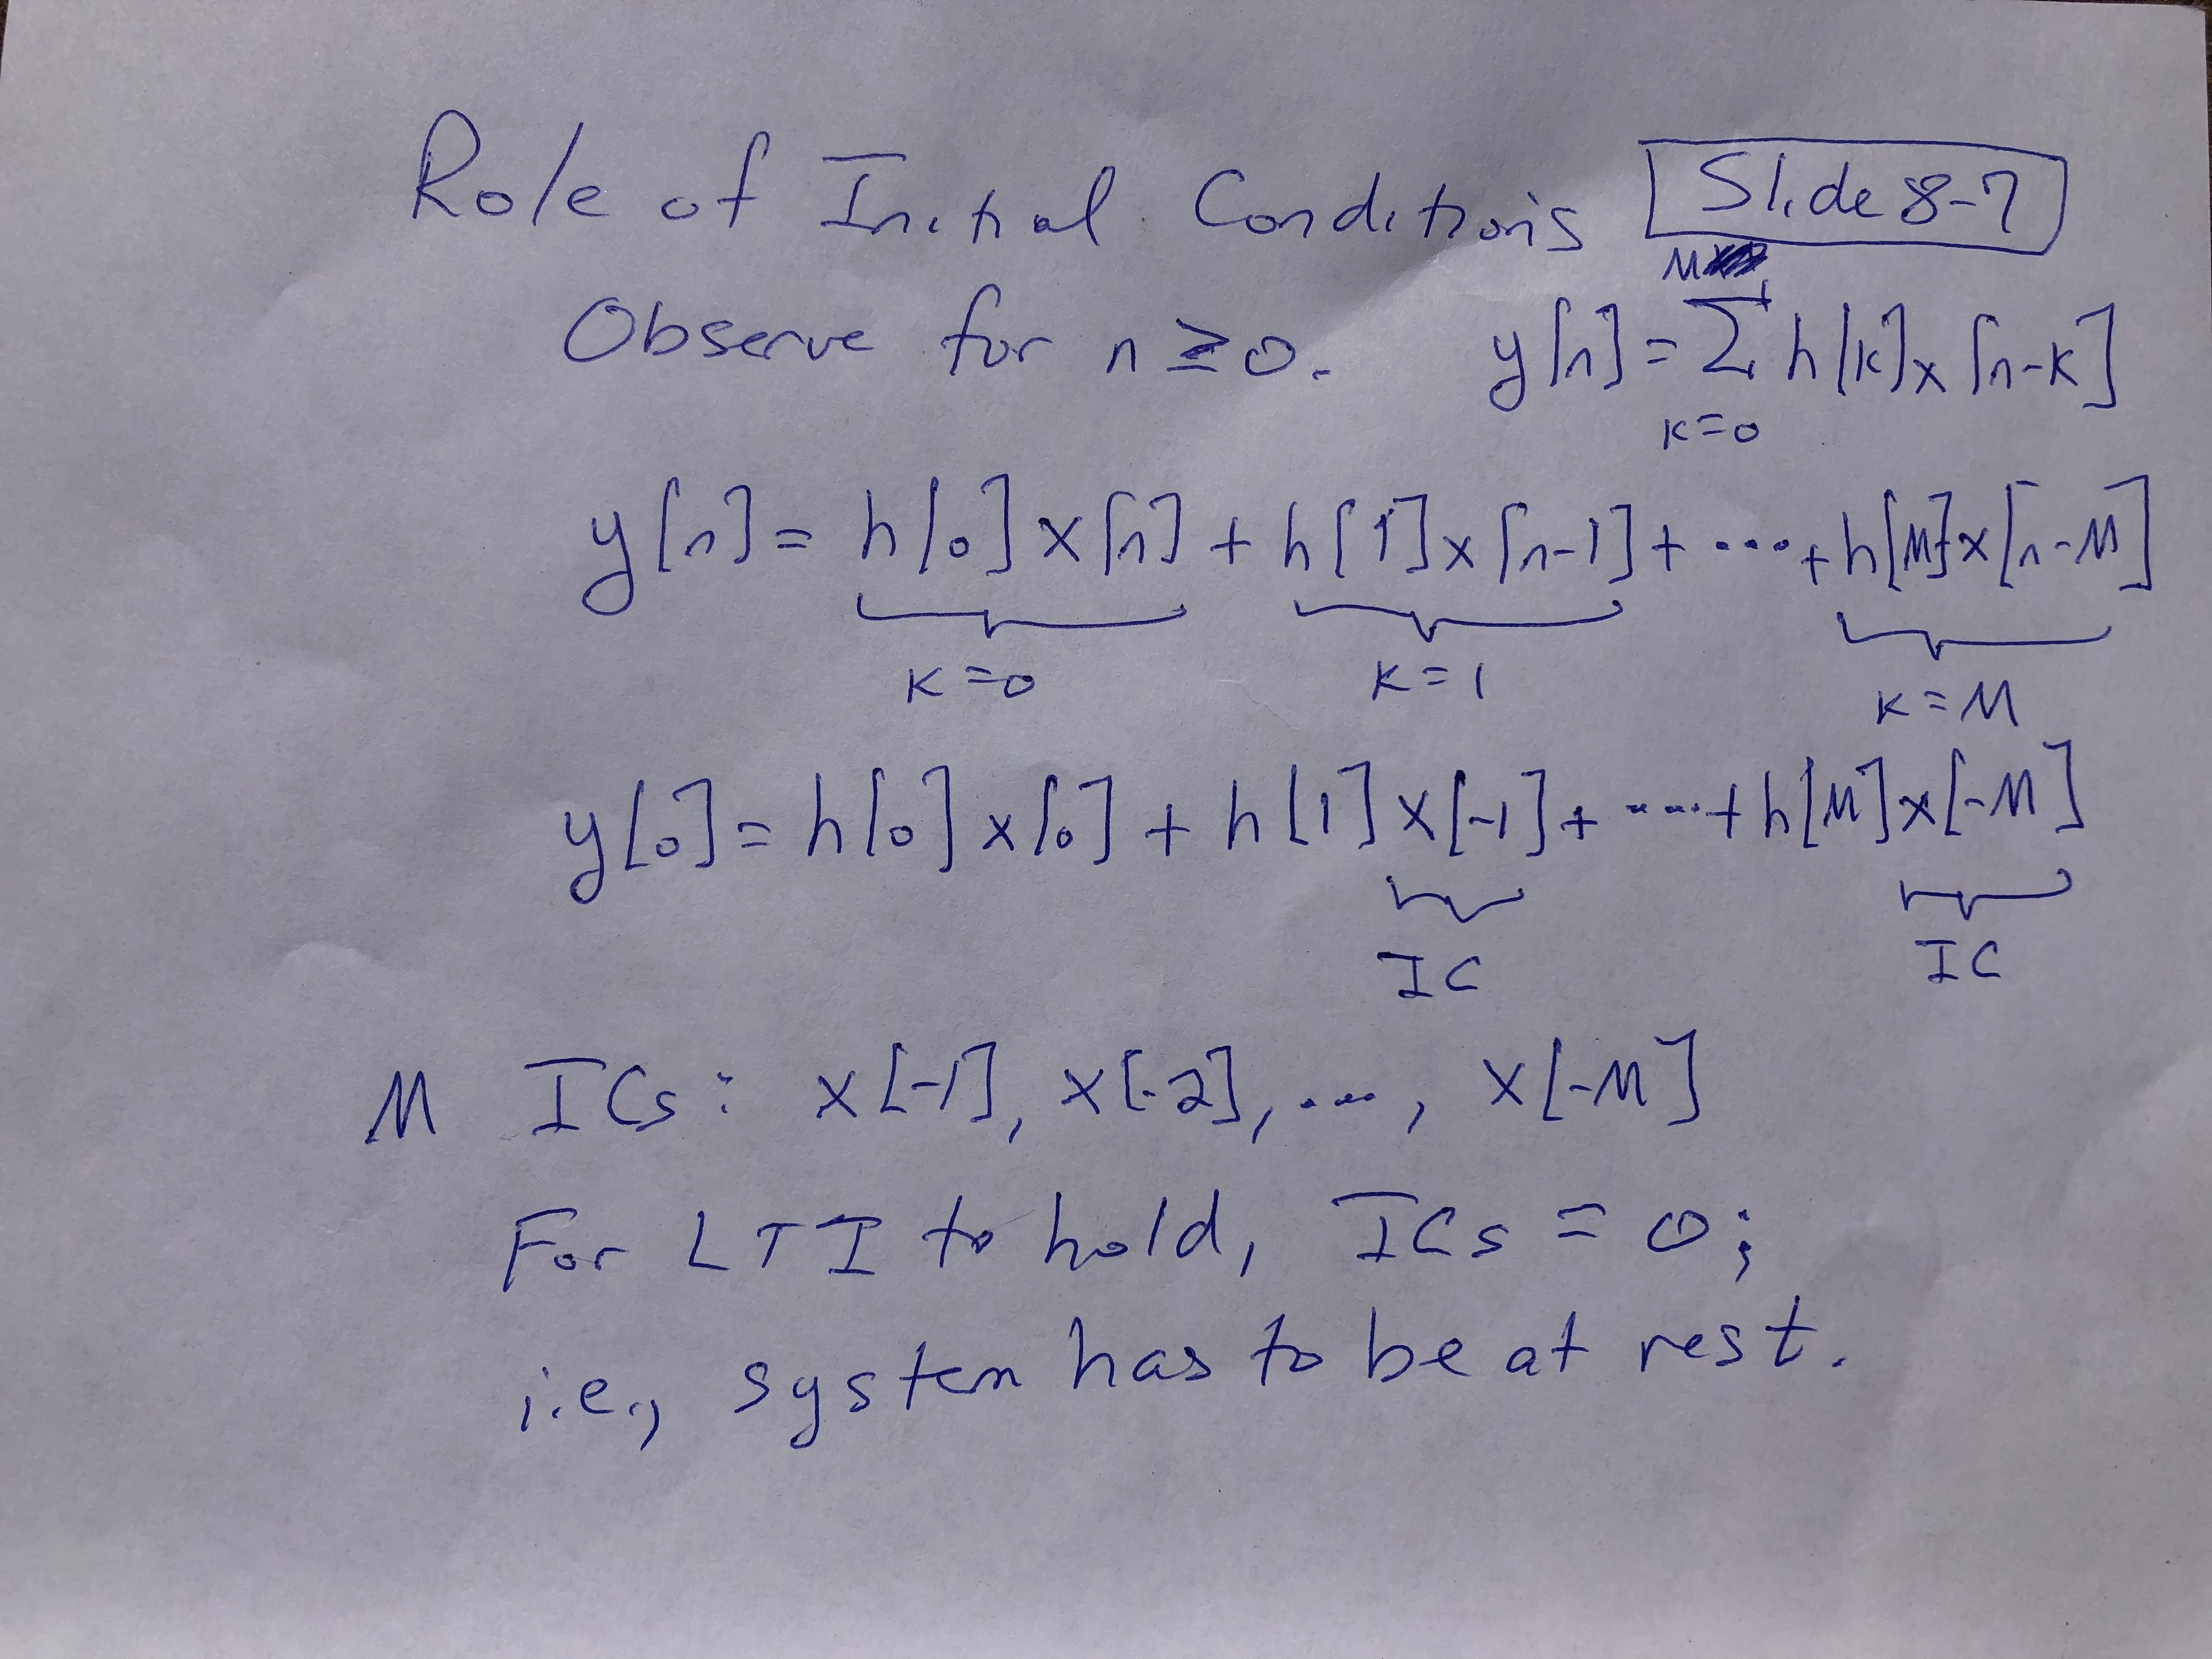 Role of Initial Conditions Slide 8-7
Observe for n ≥ 0. y[n] = M∑k=0 h[k] x[n-k]
y[n] = h[0] x[n] + h[1] x[n-1] + .... + h[M] x[n-M]
k=0 k=1 k=M
y[0] = h[0] x[0] + h[1] x[-1] + ..... + h[M] x[-M]
IC IC
M ICs: x[-1], x[-2], ...., x[-M]
For LTI to hold, ICs = 0;
i.e., system has to be at rest.